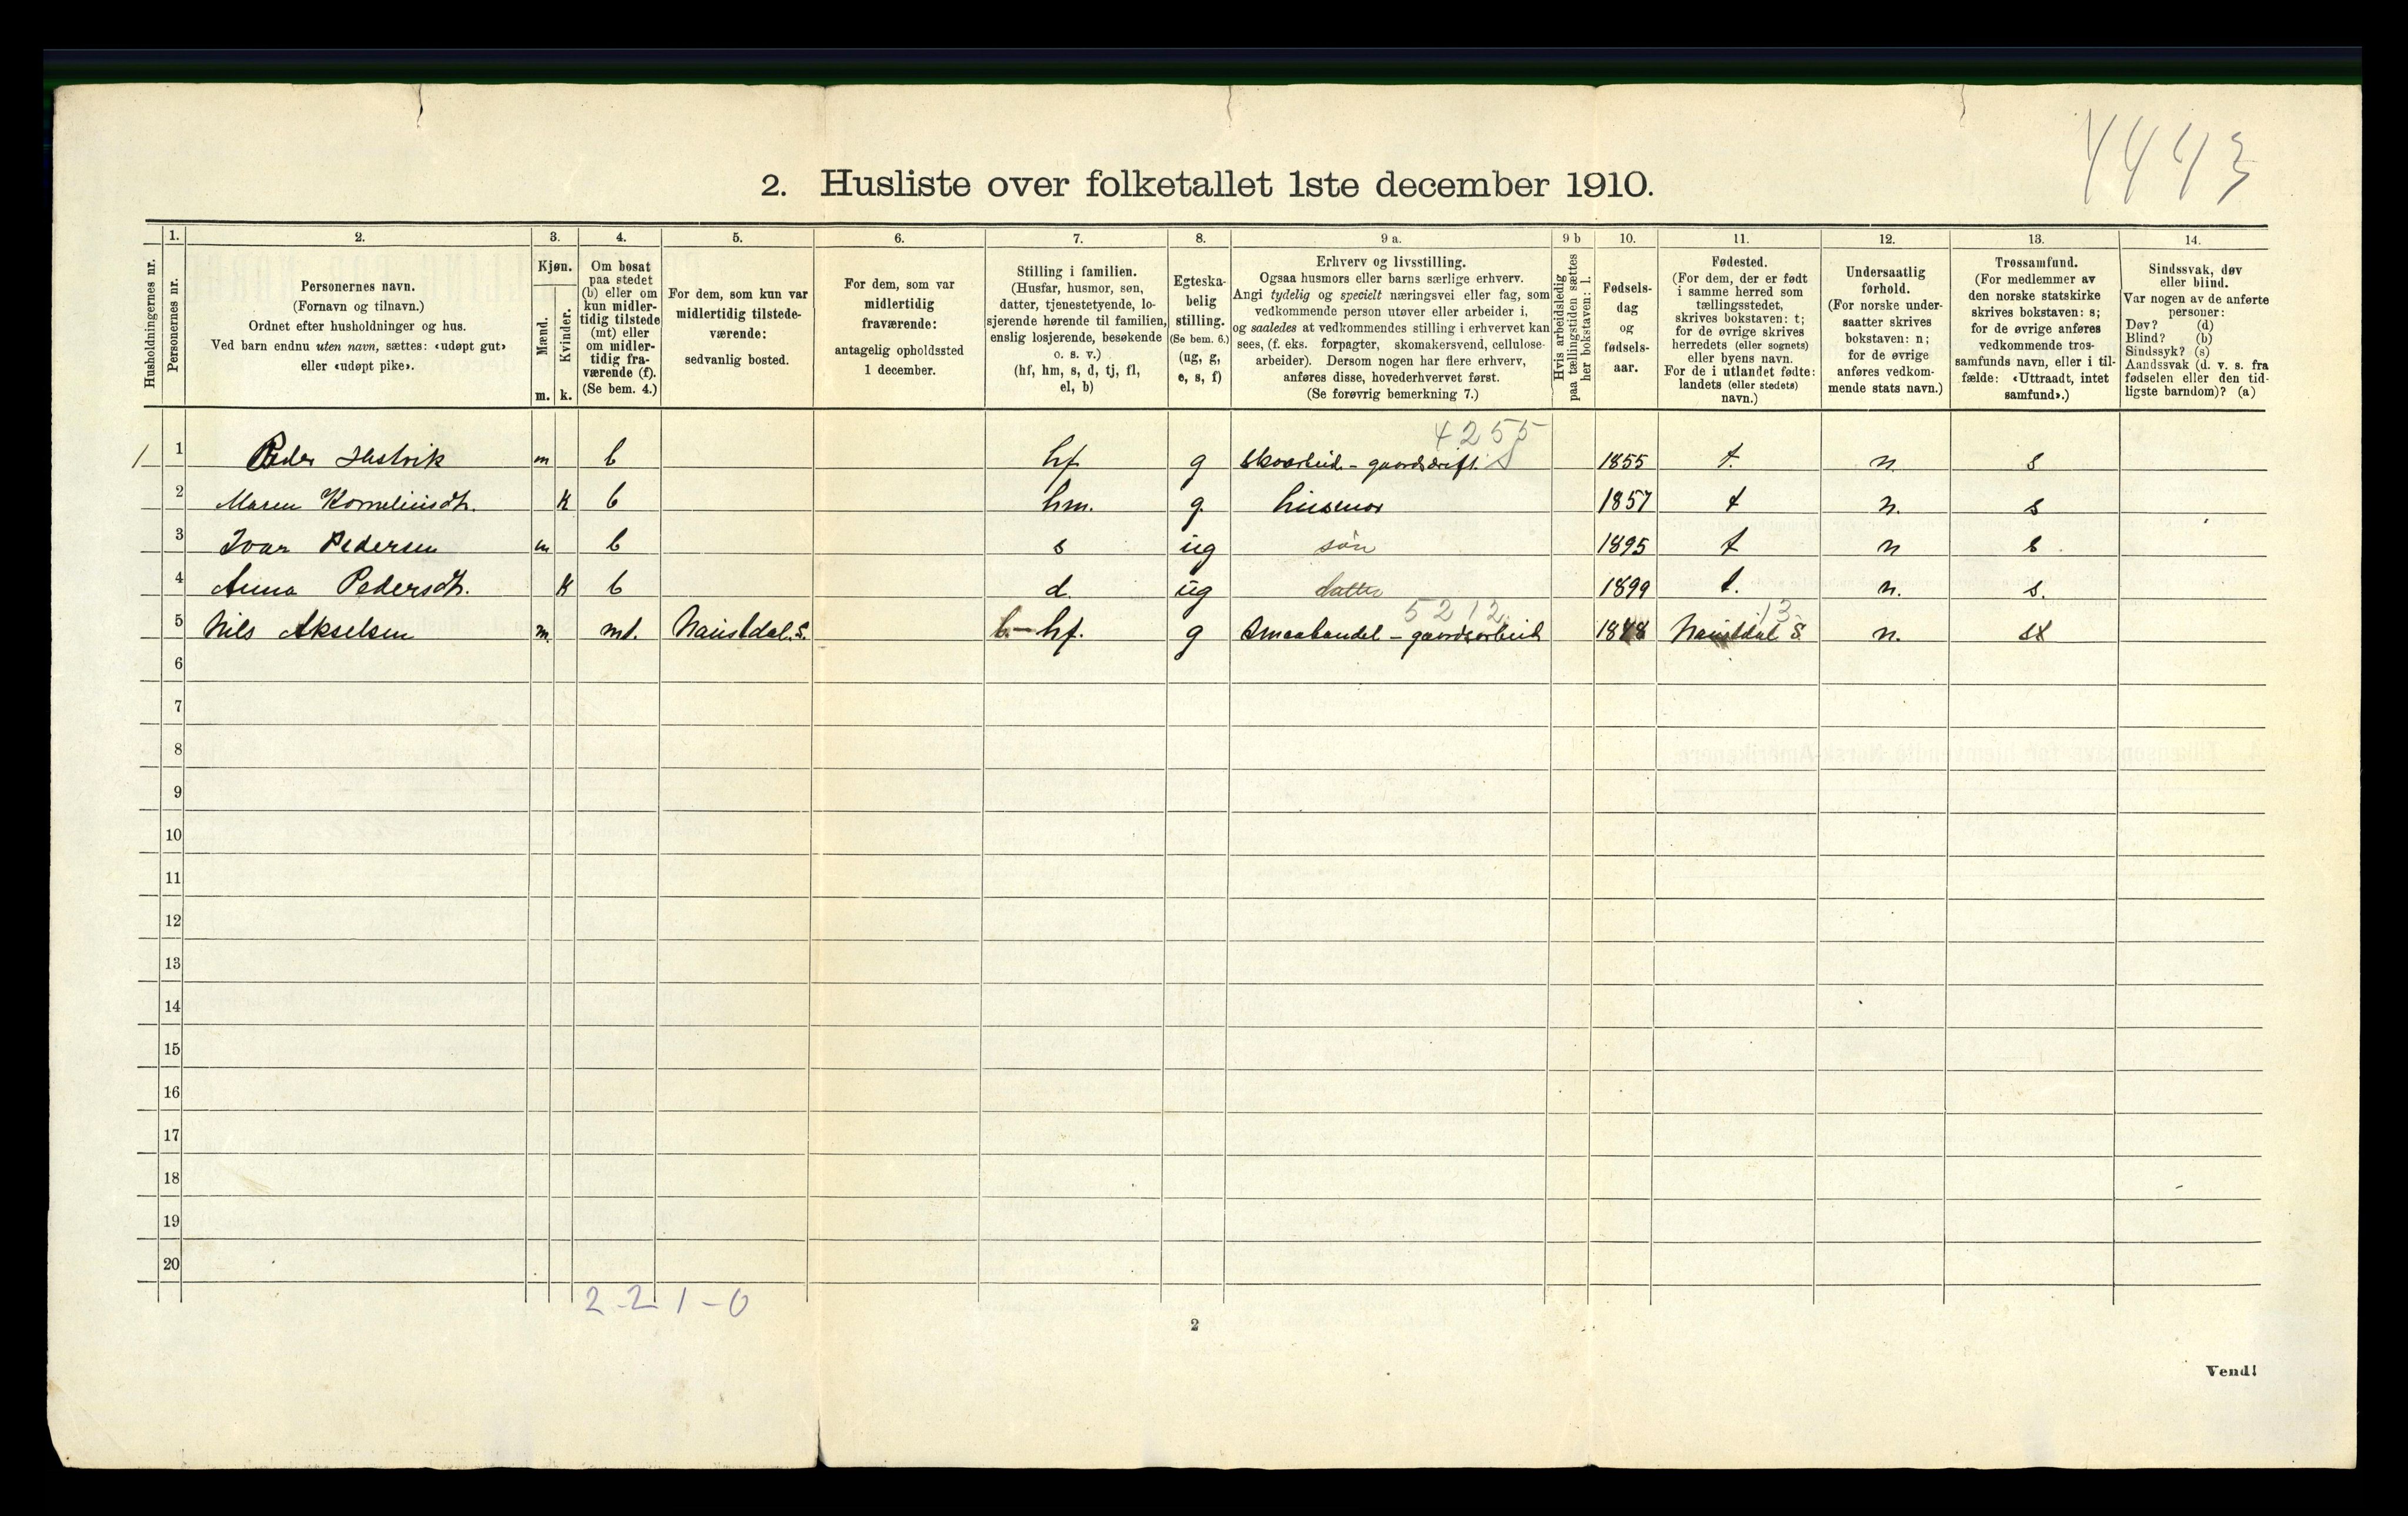 4443
2. Husliste over folketallet 1ste december 1910.
Husholdningernes nr.
1.
Personernes nr.
2.
Personernes navn.
(Fornavn og tilnavn.)
Ordnet efter husholdninger og hus.
Ved barn endnu uten navn, sættes: «udøpt gut»
eller «udøpt pike».
3.
Kjøn.
Mænd.
Kvinder.
m. k.
4.
Om bosat
paa stedet
(b) eller om
kun midler-
tidig tilstede
(mt) eller
om midler-
tidig fra-
værende (f).
(Se bem. 4.)
5.
For dem, som kun var
midlertidig tilstede-
værende:
sedvanlig bosted.
6.
For dem, som var
midlertidig
fraværende:
antagelig opholdssted
1 december.
7.
Stilling i familien.
(Husfar, husmor, søn,
datter, tjenestetyende, lo-
sjerende hørende til familien,
enslig losjerende, besøkende
o. s. v.)
(hf, hm, s, d, tj, fl,
el, b)
8.
Egteska-
belig
stilling.
(Se bem. 6.)
(ug, g,
e, s, f)
9 a.
Erhverv og livsstilling.
Ogsaa husmors eller barns særlige erhverv.
Angi tydelig og specielt næringsvei eller fag, som
vedkommende person utøver eller arbeider i,
og saaledes at vedkommendes stilling i erhvervet kan
sees, (f. eks. forpagter, skomakersvend, cellulose-
arbeider). Dersom nogen har flere erhverv,
anføres disse, hovederhvervet først.
(Se forøvrig bemerkning 7.)
9 b
Hvis arbeidsledig
paa tællingstiden sættes
her bokstaven: l.
10.
Fødsels-
dag
og
fødsels-
aar.
11.
Fødested.
(For dem, der er født
i samme herred som
tællingsstedet,
skrives bokstaven: t;
for de øvrige skrives
herredets (eller sognets)
eller byens navn.
For de i utlandet fødte:
landets (eller stedets)
navn.)
12.
Undersaatlig
forhold.
(For norske under-
saatter skrives
bokstaven: n;
for de øvrige
anføres vedkom-
mende stats navn.)
13.
Trossamfund.
(For medlemmer av
den norske statskirke
skrives bokstaven: s;
for de øvrige anføres
vedkommende tros-
samfunds navn, eller i til-
fælde: «Uttraadt, intet
samfund».)
14.
Sindssvak, døv
eller blind.
Var nogen av de anførte
personer:
Døv? (d)
Blind? (b)
Sindssyk? (s)
Aandssvak (d. v. s. fra
fødselen eller den tid-
ligste barndom)? (a)
4255
1 1 Peder Hustvik m b hf g skoarbeid. - gaardsdrift. S 1855 t. n s
2 Maren Korneliusdtr. k b hm. g. husmor 1857 t n. s
3 Ivar Pedersen m b s ug søn 1895 t n s
4 Anna Pedersdtr. k b d. ug datter 1899 t. n. s.
5212 13
5 Nils Akselsen m mt. Naustdal. S. b - hf. g smaahandel - gaardsarbeid 1848 Naustdal S. n. s
6
7
8
9
10
11
12
13
14
15
16
17
18
19
20
2-2 1-0
2
Vend!